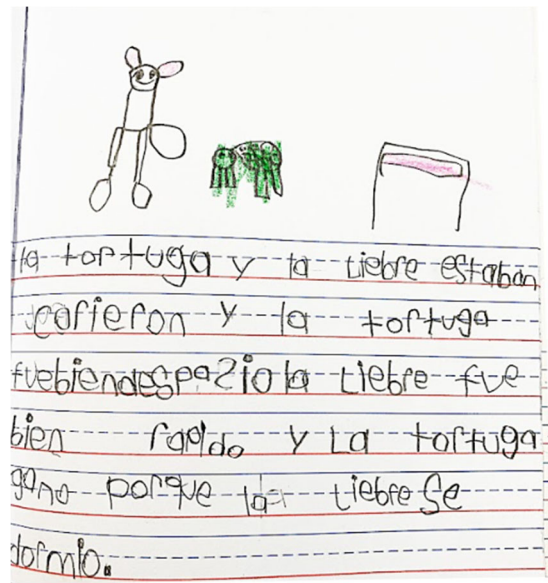 la tortuga y la liebre estaban
corieron y la tortuga
fuebiendespasio la liebre fue
bien rapido y La tortuga
gano porque la liebre se
dormio.